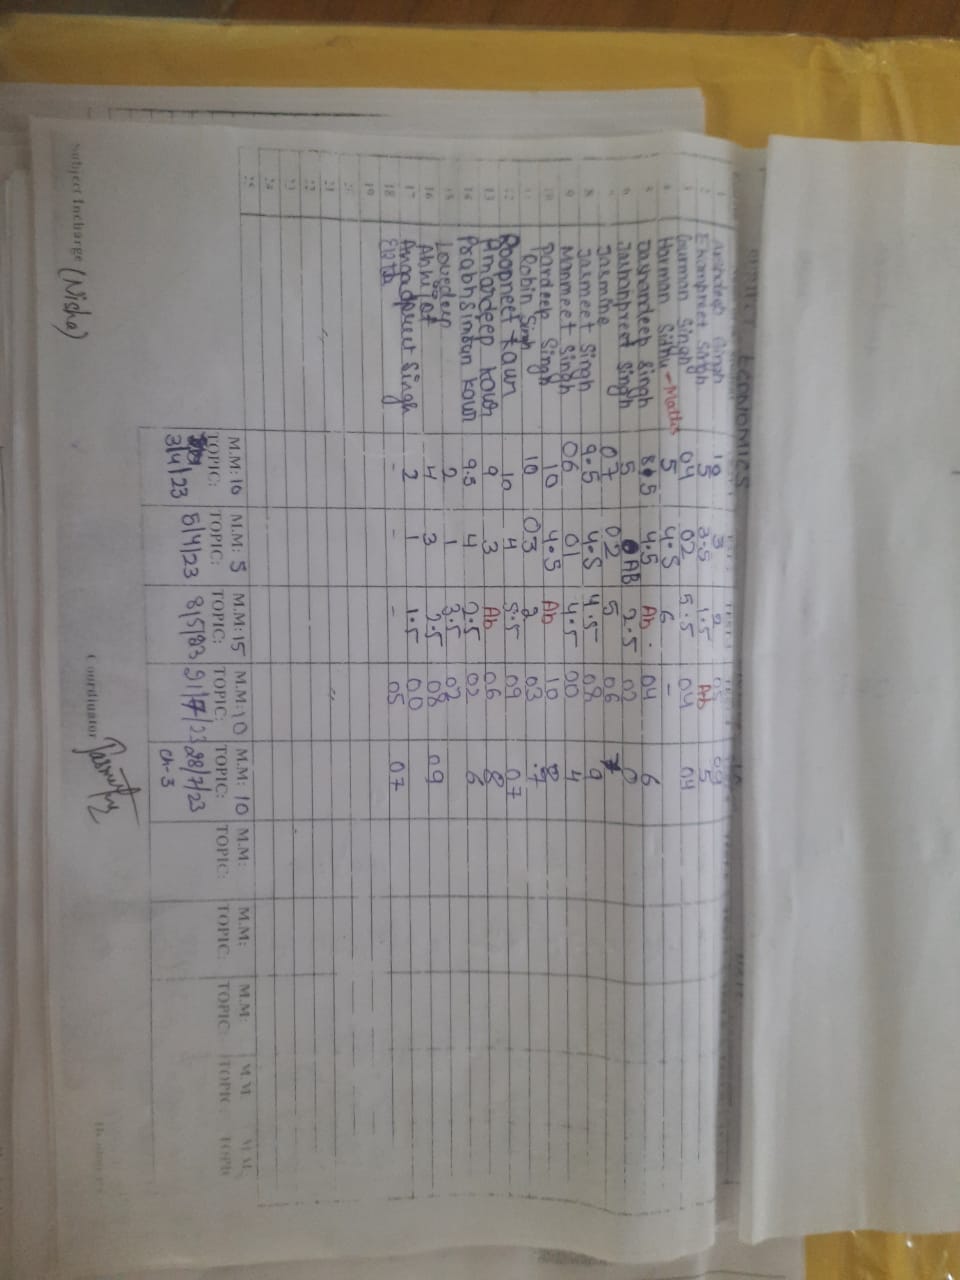 ECONOMICS
1 Arshdeep Singh 10 3 2 05 09
2 Ekampreet Singh 5 3.5 1.5 Ab 5
3 Gurman Singh 04 02 5.5 04 04
4 Harman Sidhu - Maths 5 4.5 6 -
5 Jashandeep Singh 8.5 4.5 Ab. 04 6
6 Jashanpreet Singh 5 AB 2.5 02
7 Jasmine 07 02 5 06 7
8 Jasmeet Singh 9.5 4.5 4.5 08 9
9 Manmeet Singh 06 01 4.5 00 4
10 Pardeep Singh 10 4.5 Ab 10 8
11 Robin Singh 10 03 2 03 .7
12 Roopneet Kaur 10 4 5.5 09 07
13 Amardeep Kour 9 3 Ab 06 8
14 Prabhsimran Kour 9.5 4 2.5 02 6
15 Lovedeep 2 1 3.5 08
16 Abhijot 4 3 2.5 08 09
17 Angadpreet Singh 2 1 1.5 00
18 Ekta - - - 05 07
19
20
21
22
23
24
25
M.M: 10 M.M: 5 M.M: 15 M.M: 10 M.M: 10 M.M: M.M: M.M: M.M. M.M.
TOPIC: TOPIC: TOPIC: TOPIC: TOPIC: TOPIC: TOPIC: TOPIC: TOPIC TOPIC
3/4/23 5/4/23 8/5/23 21/7/23 28/7/23
Ch-3
Subject Incharge (Nisha) Coordinator